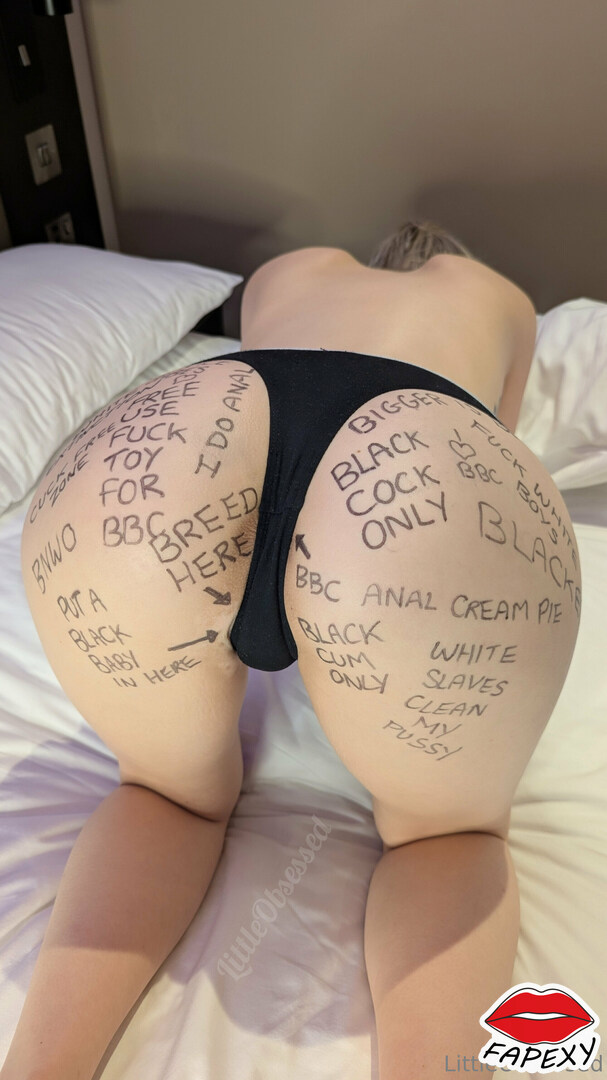 FREE
USE
FUCK
TOY
FOR
BBC
I DO ANAL
FREE
ZONE
BNWO
BREED
HERE
PUT A
BLACK
BABY
IN HERE
BIGGER
BLACK
COCK
ONLY
I
BBC
FUCK WHITE
BOYS
BBC ANAL CREAM PIE
BLACK
CUM
ONLY
WHITE
SLAVES
CLEAN
MY
PUSSY
LittleObsessed
FAPEXY